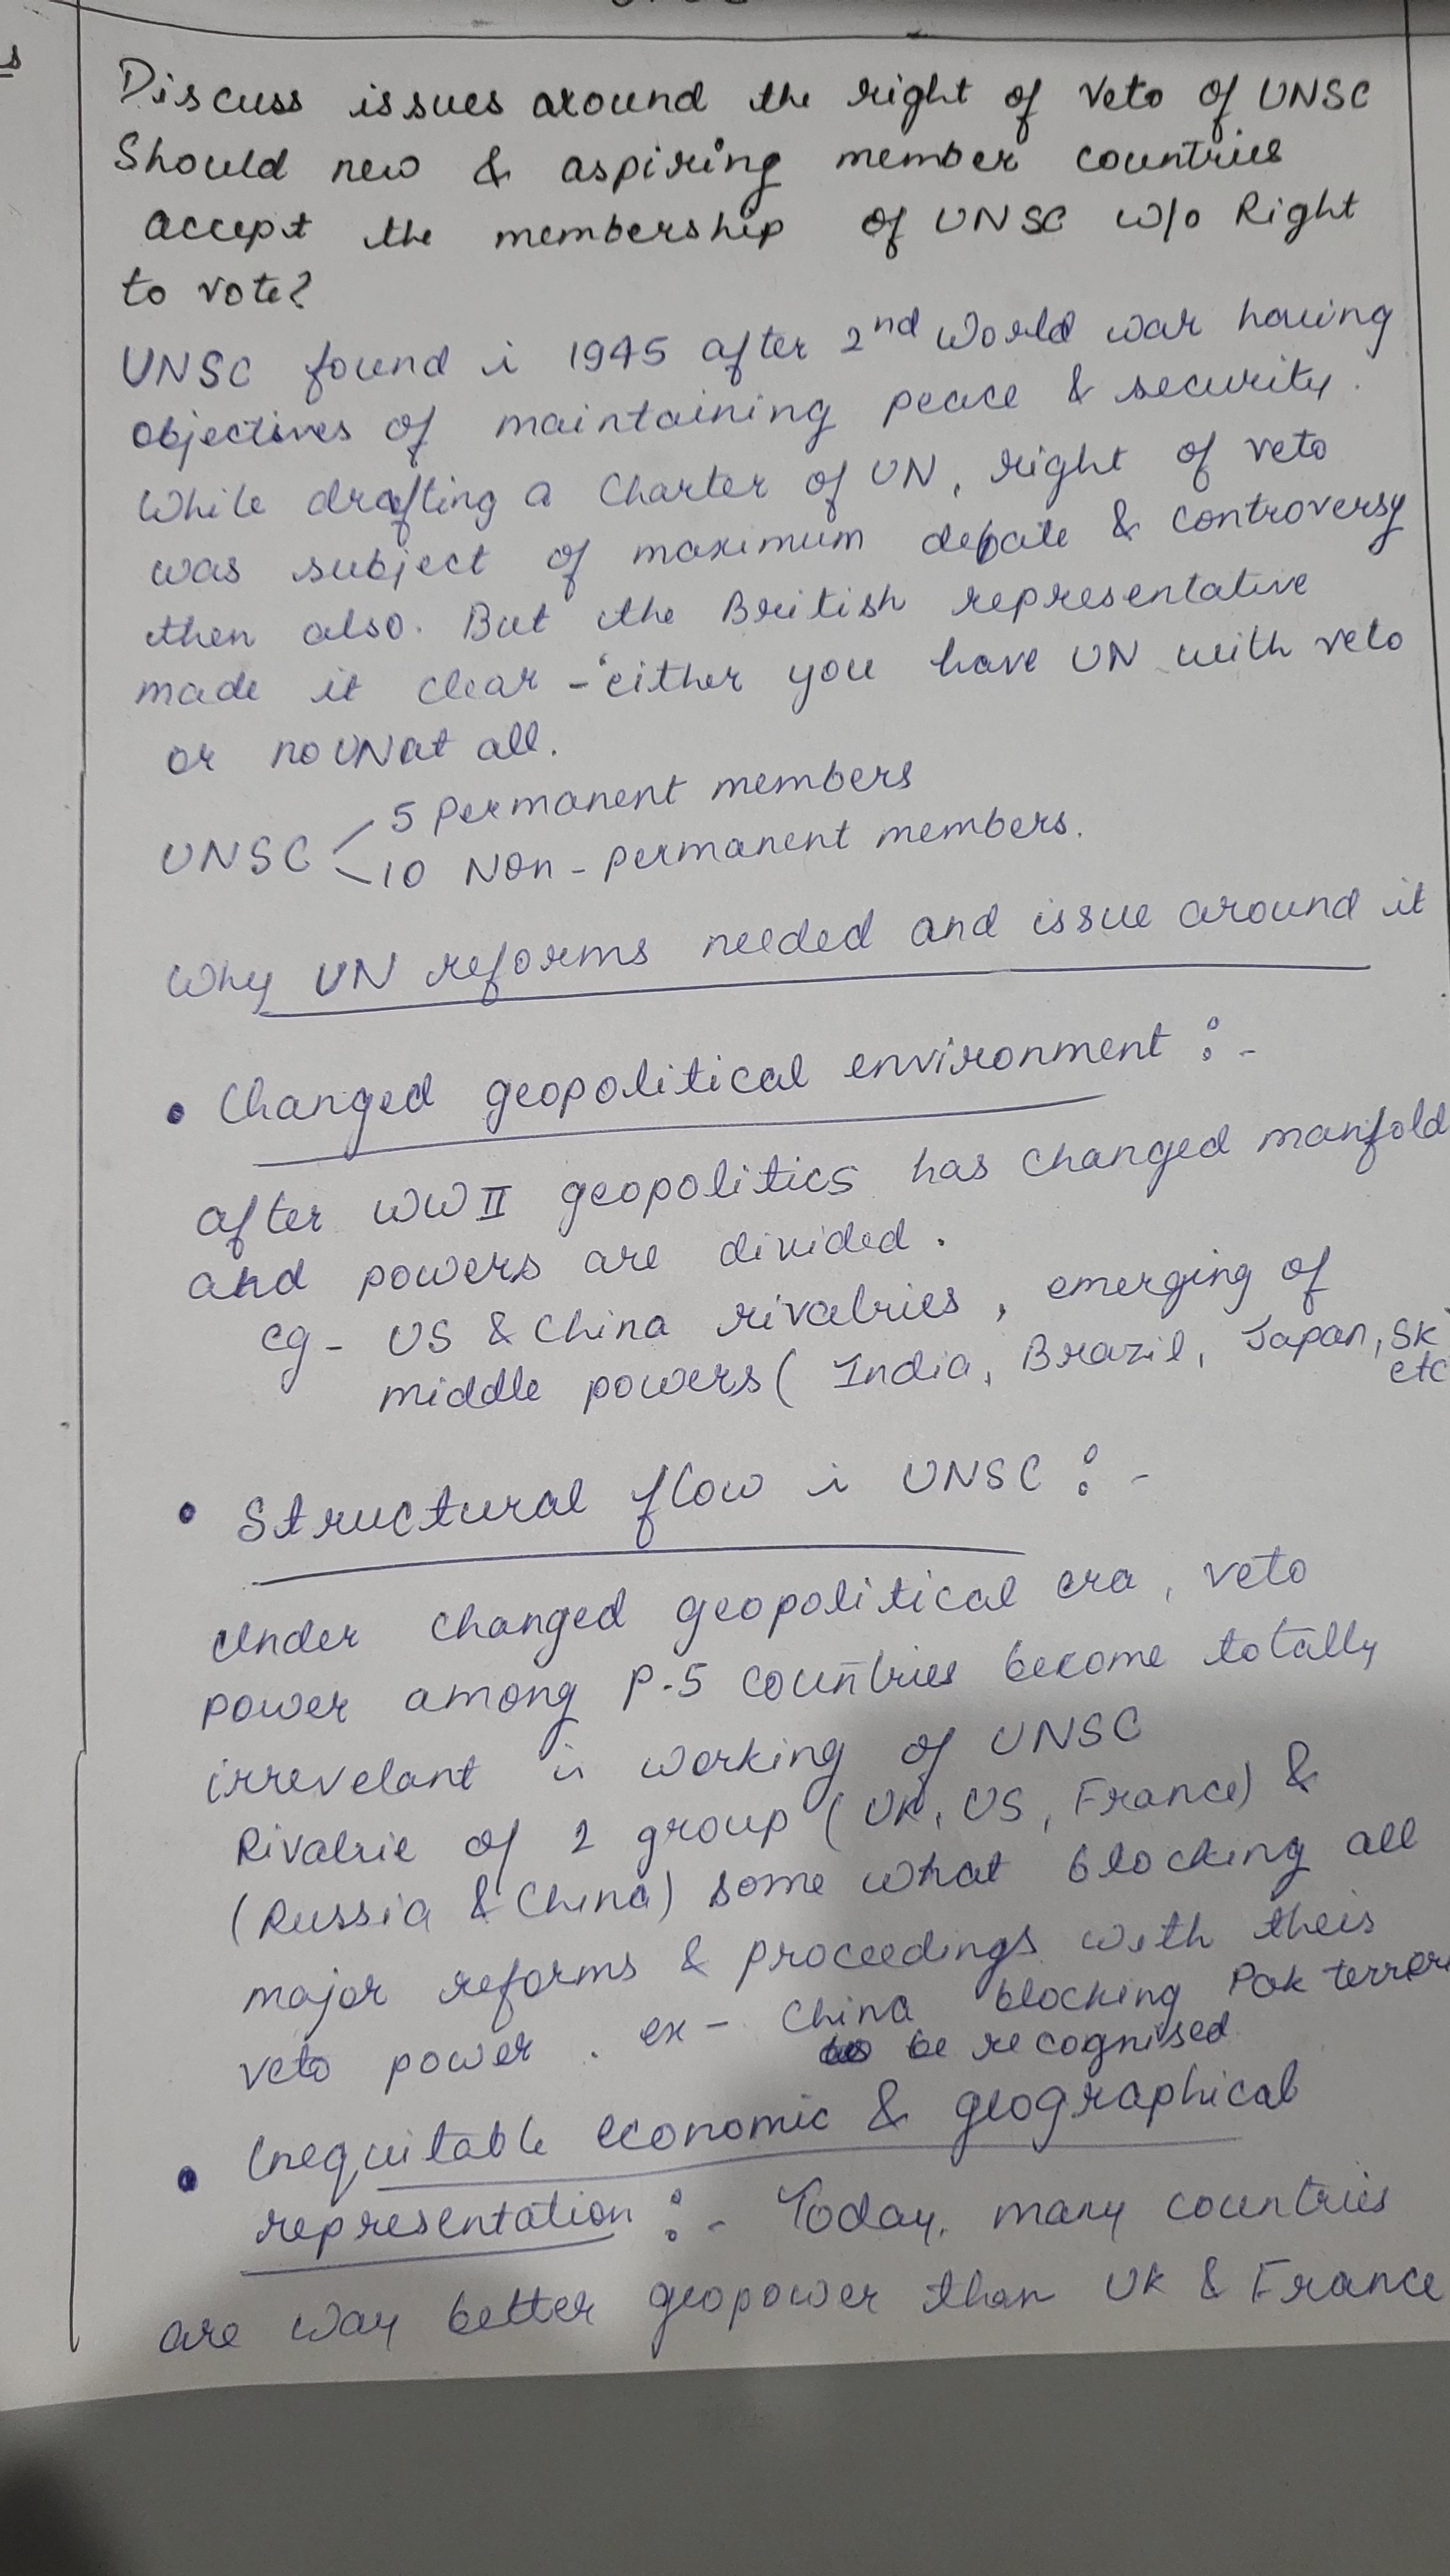 Discuss issues around the right of Veto of UNSC
Should new & aspiring member countries
accept the membership of UNSC w/o Right
to vote?
UNSC found i 1945 after 2nd World war having
objectives of maintaining peace & security.
While drafting a Charter of UN, right of veto
was subject of maximum debate & controversy
then also. But the British representative
made it clear - 'either you have UN with veto
or no UN at all.
UNSC
5 Permanent members
10 Non-permanent members.
Why UN reforms needed and issue around it
• Changed geopolitical environment :-
after WW II geopolitics has changed manfold
and powers are divided.
eg - US & China rivalries, emerging of
middle powers ( India, Brazil, Japan, SK
etc
• Structural flow i UNSC :-
Under changed geopolitical era, veto
power among P-5 countries become totally
irrevelant in working of UNSC
Rivalrie of 2 group (UK, US, France) &
(Russia & China) some what blocking all
major reforms & proceedings with theis
veto power. ex - China blocking Pak terror
be recognised
• Inequitable economic & geographical
representation :- Today, many countries
are way better geopower than UK & France